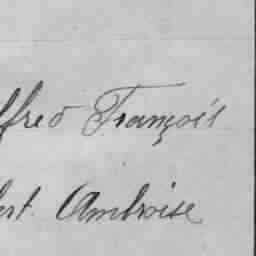 lfred François
ert. Ambroise